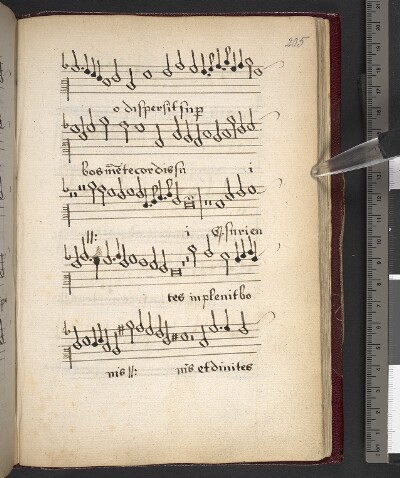 205
o dispersit sup̱
bos mẽte cordis sui
ij: i Esurien
tes inplenit bo
nis ij: nis et divites